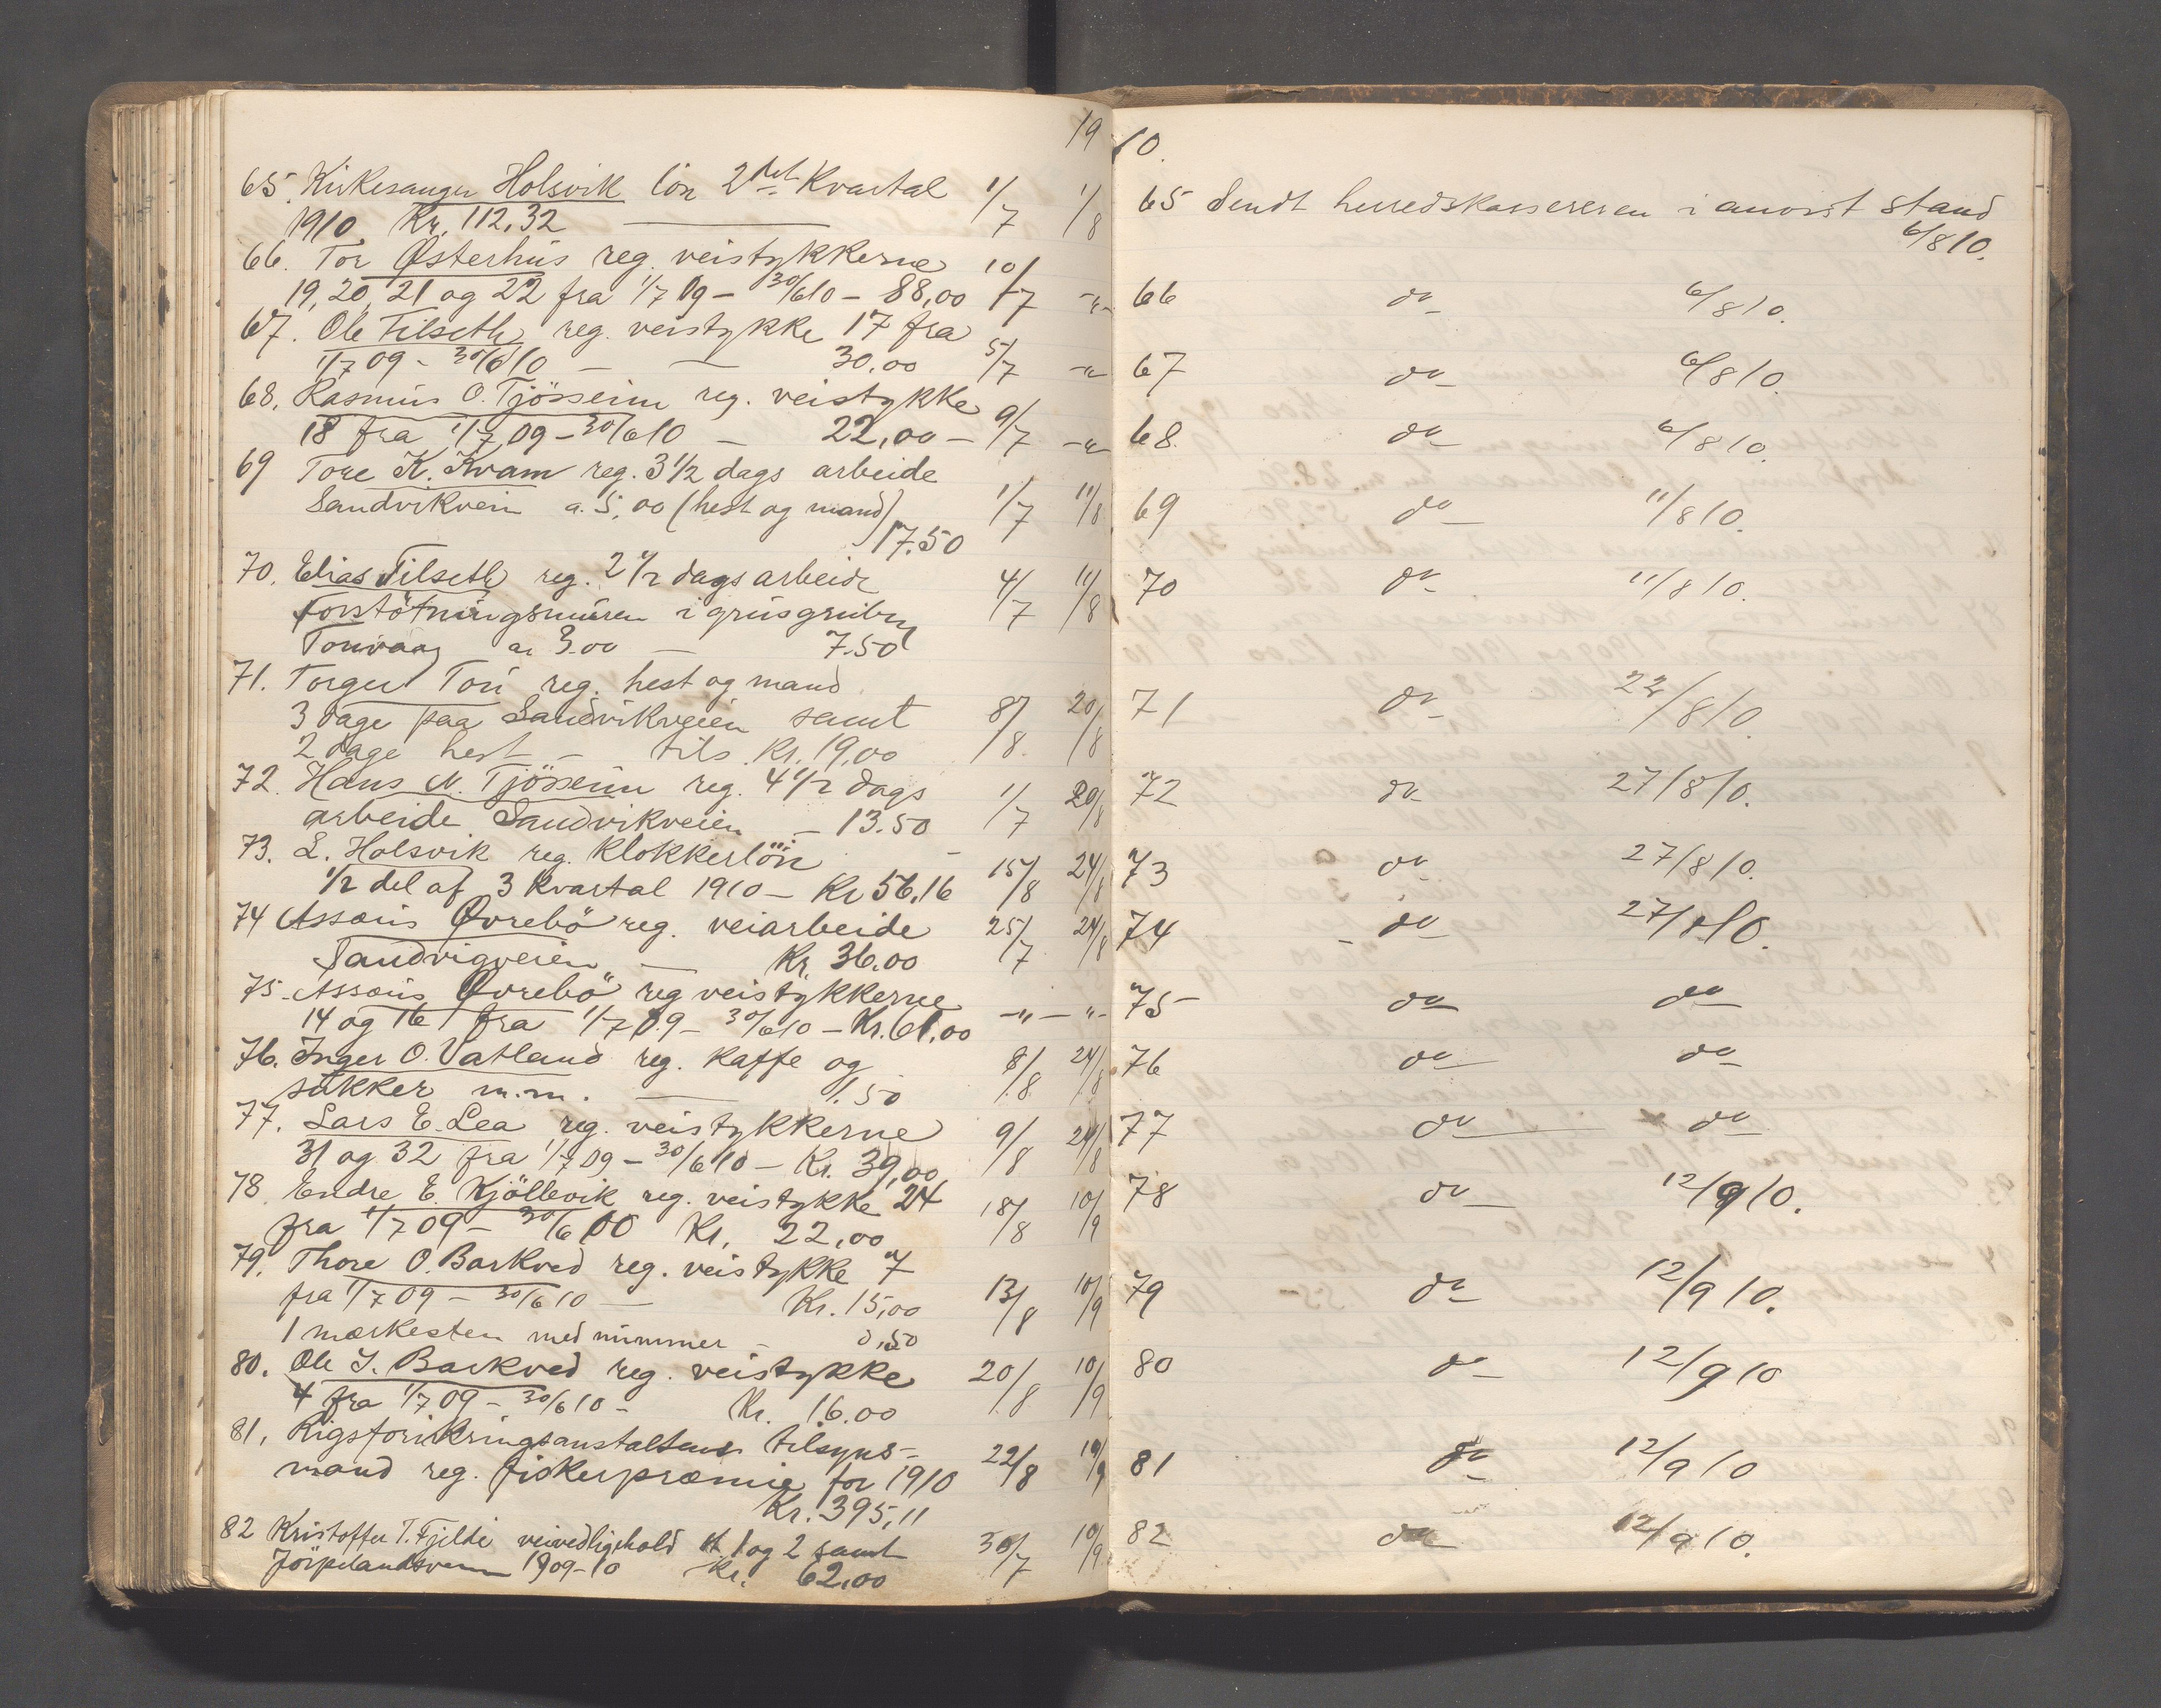 1910.
65. Kirkesanger Holsvik lön 2det Kvartal 1/7 1/8
1910 Kr. 112,32
66. Tor Østerhus reg. veistykkerne 10/7 -"-
19, 20, 21 og 22 fra 1/7 09 - 30/6 10 - 88,00
67. Ole Tilseth reg. veistykke 17 fra
1/7 09 - 30/6 10 - 30.00 5/7 -"-
68. Rasmus O. Tjösseim reg. veistykke
18 fra 1/7 09 - 30/6 10 - 22,00 - 9/7 -"-
69 Tore K. Kvam reg. 3 1/2 dags arbeide
Sandvikvein a. 5,00 (hest og mand) 1/7 11/8
17.50
70. Elias Tilseth reg. 2 1/2 dags arbeide 4/7 11/8
Forstötningsmuren i grusgruben
Tonvaag a 3.00 - 7.50
71. Torger Tou reg. hest og mand
3 dage paa Sandvikveien samt 8/8 20/8
2 dage hest - tils. Kr. 19,00
72. Hans M. Tjösseim reg. 4 1/2 dags 1/7 20/8
arbeide Sandvikveien - 13.50
73. L. Holsvik reg. Klokkerlön 15/8 24/8
1/2 del af 3 kvartal 1910 - Kr 56.16
74 Assœus Øvrebö reg. veiarbeide 25/7 24/8
Sandvigveien - Kr. 36.00
75. Assœus Øvrebö reg veistykkerne
14 og 16 fra 1/7 09 - 30/6 10 - Kr. 61,00 -"- -"-
76. Inger O. Vatland reg. kaffe og 8/8 24/8
sukker m.m. - 1.50
77. Lars E. Lea reg. veistykkerne 9/8 24/8
31 og 32 fra 1/7 09 - 30/6 10 - Kr. 39,00
78 Endre E. Kjöllevik reg. veistykke 24 18/8 10/9
fra 1/7 09 - 30/6 00 Kr. 22,00
79. Thore O. Barkved reg. veistykke 7
fra 1/7 09 - 30/6 10 - Kr. 15,00 13/8 10/9
1 mærkesten med nummer - 0,50
80. Ole J. Barkved reg. veistykke 20/8 10/9
4 fra 1/7 09 - 30/6 10 - Kr. 16.00
81. Rigsforsikringsanstaltens tilsyns- 22/8 10/9
mand reg. fiskerpræmie for 1910
Kr. 395,11
82 Kristoffer T. Fjelde veivedligehold 1 og 2 samt 30/7 10/9
Jörpelandsveien 1909-10 Kr. 62,00
65 Sendt herredskassereren i anvist stand
6/8 10.
66 do 6/8 10.
67 do 6/8 10.
68 do 6/8 10.
69 do 11/8 10.
70 do 11/8 10.
71 do 22/8 10.
72 do 27/8 10.
73 do 27/8 10.
74 do 27/8 10.
75 do do
76 do do
77 do do
78 do 12/9 10.
79 do 12/9 10.
80 do 12/9 10
81 do 12/9 10
82 do 12/9 10.